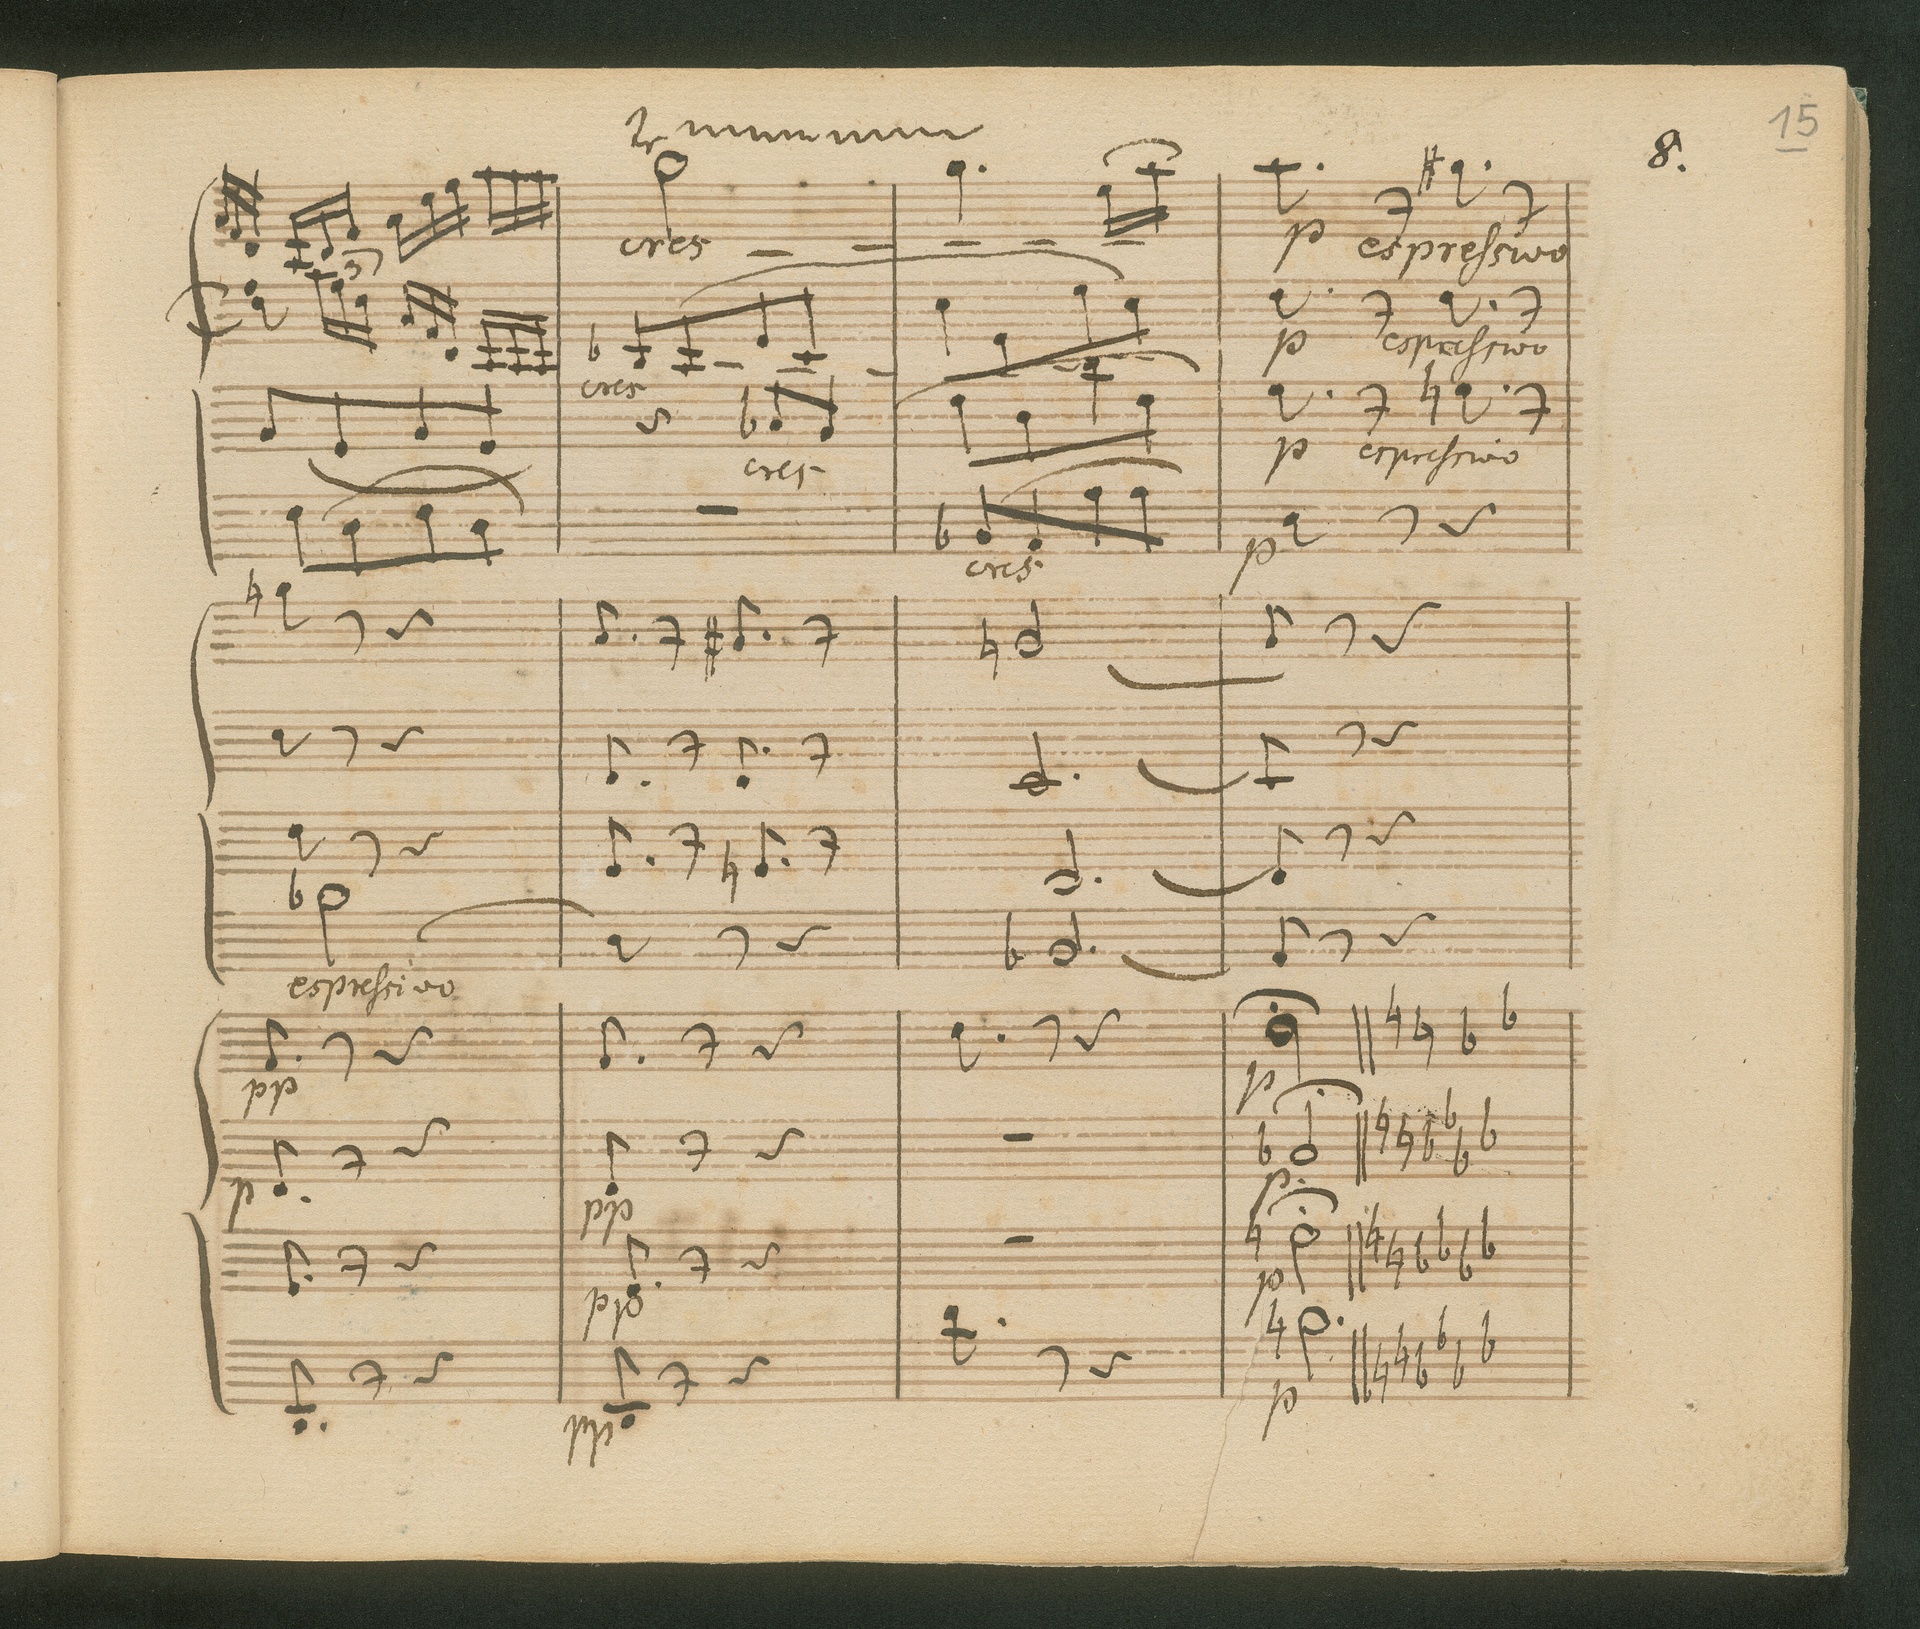 15
8.
tr
cres
p espressivo
3
cres
p espressivo
cres
p espressivo
cres
p
espressivo
pp
p
p
pp
p
pp
p
pp
p